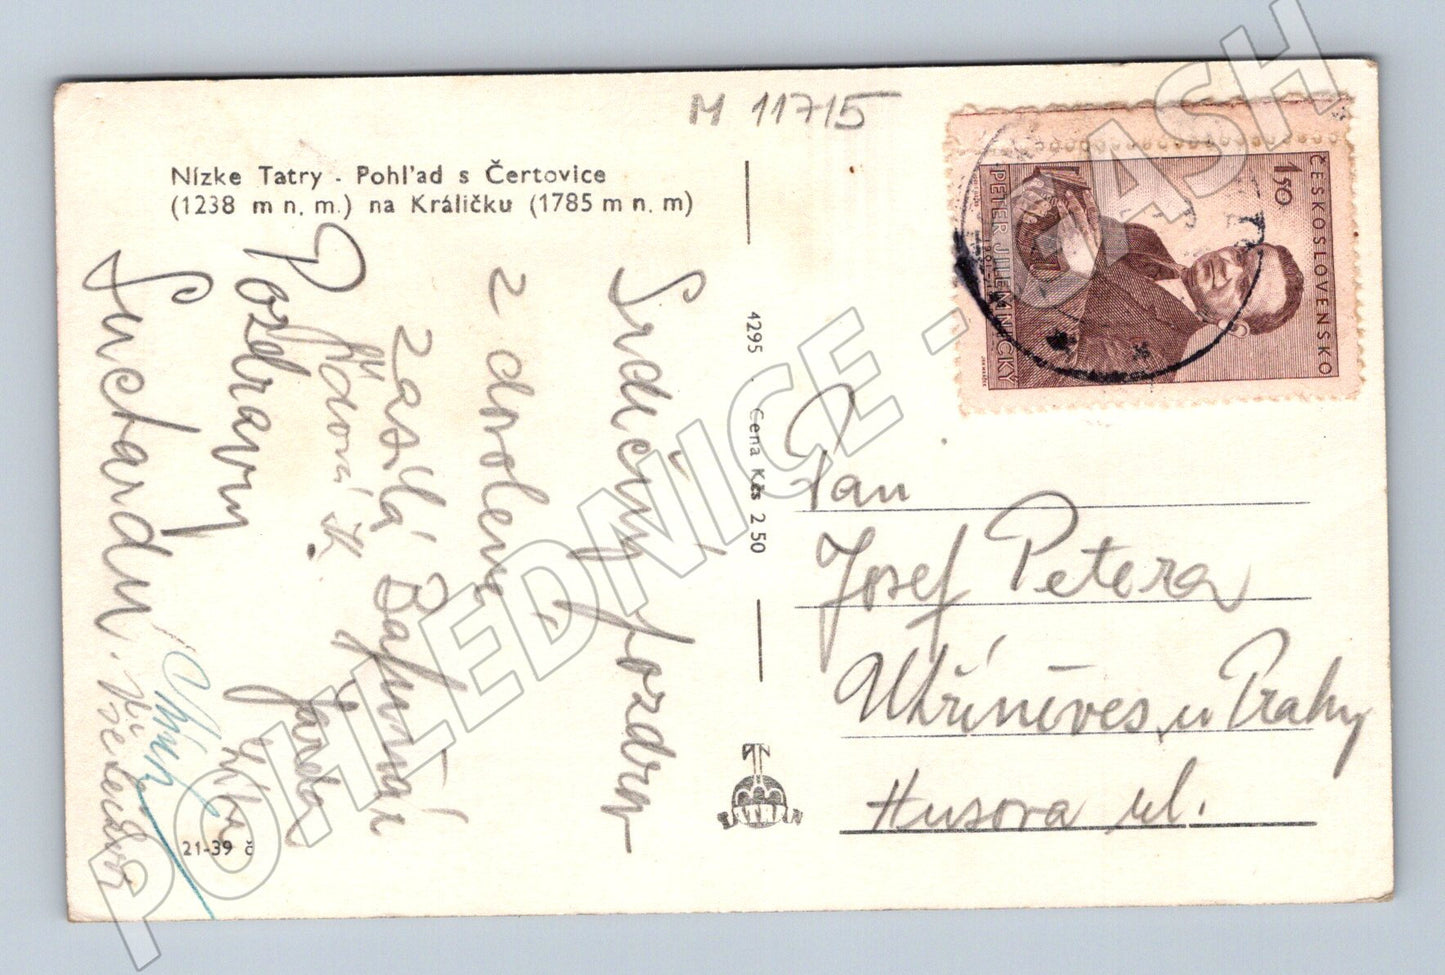 M 11715
Nízke Tatry - Pohľad s Čertovice
(1238 m n. m.) na Králičku (1785 m n. m)
Srdečný pozdrav
z dovolené
zasílá
Jarda
Pozdravy
Suchardu
4295 . Cena Kčs 2 50
TATRAN
21-39 č
ČESKOSLOVENSKO
1,50
PETER JILEMNICKÝ
Pan
Josef Petera
Uhříněves u Prahy
Husova ul.
POHLEDNICE - GASH